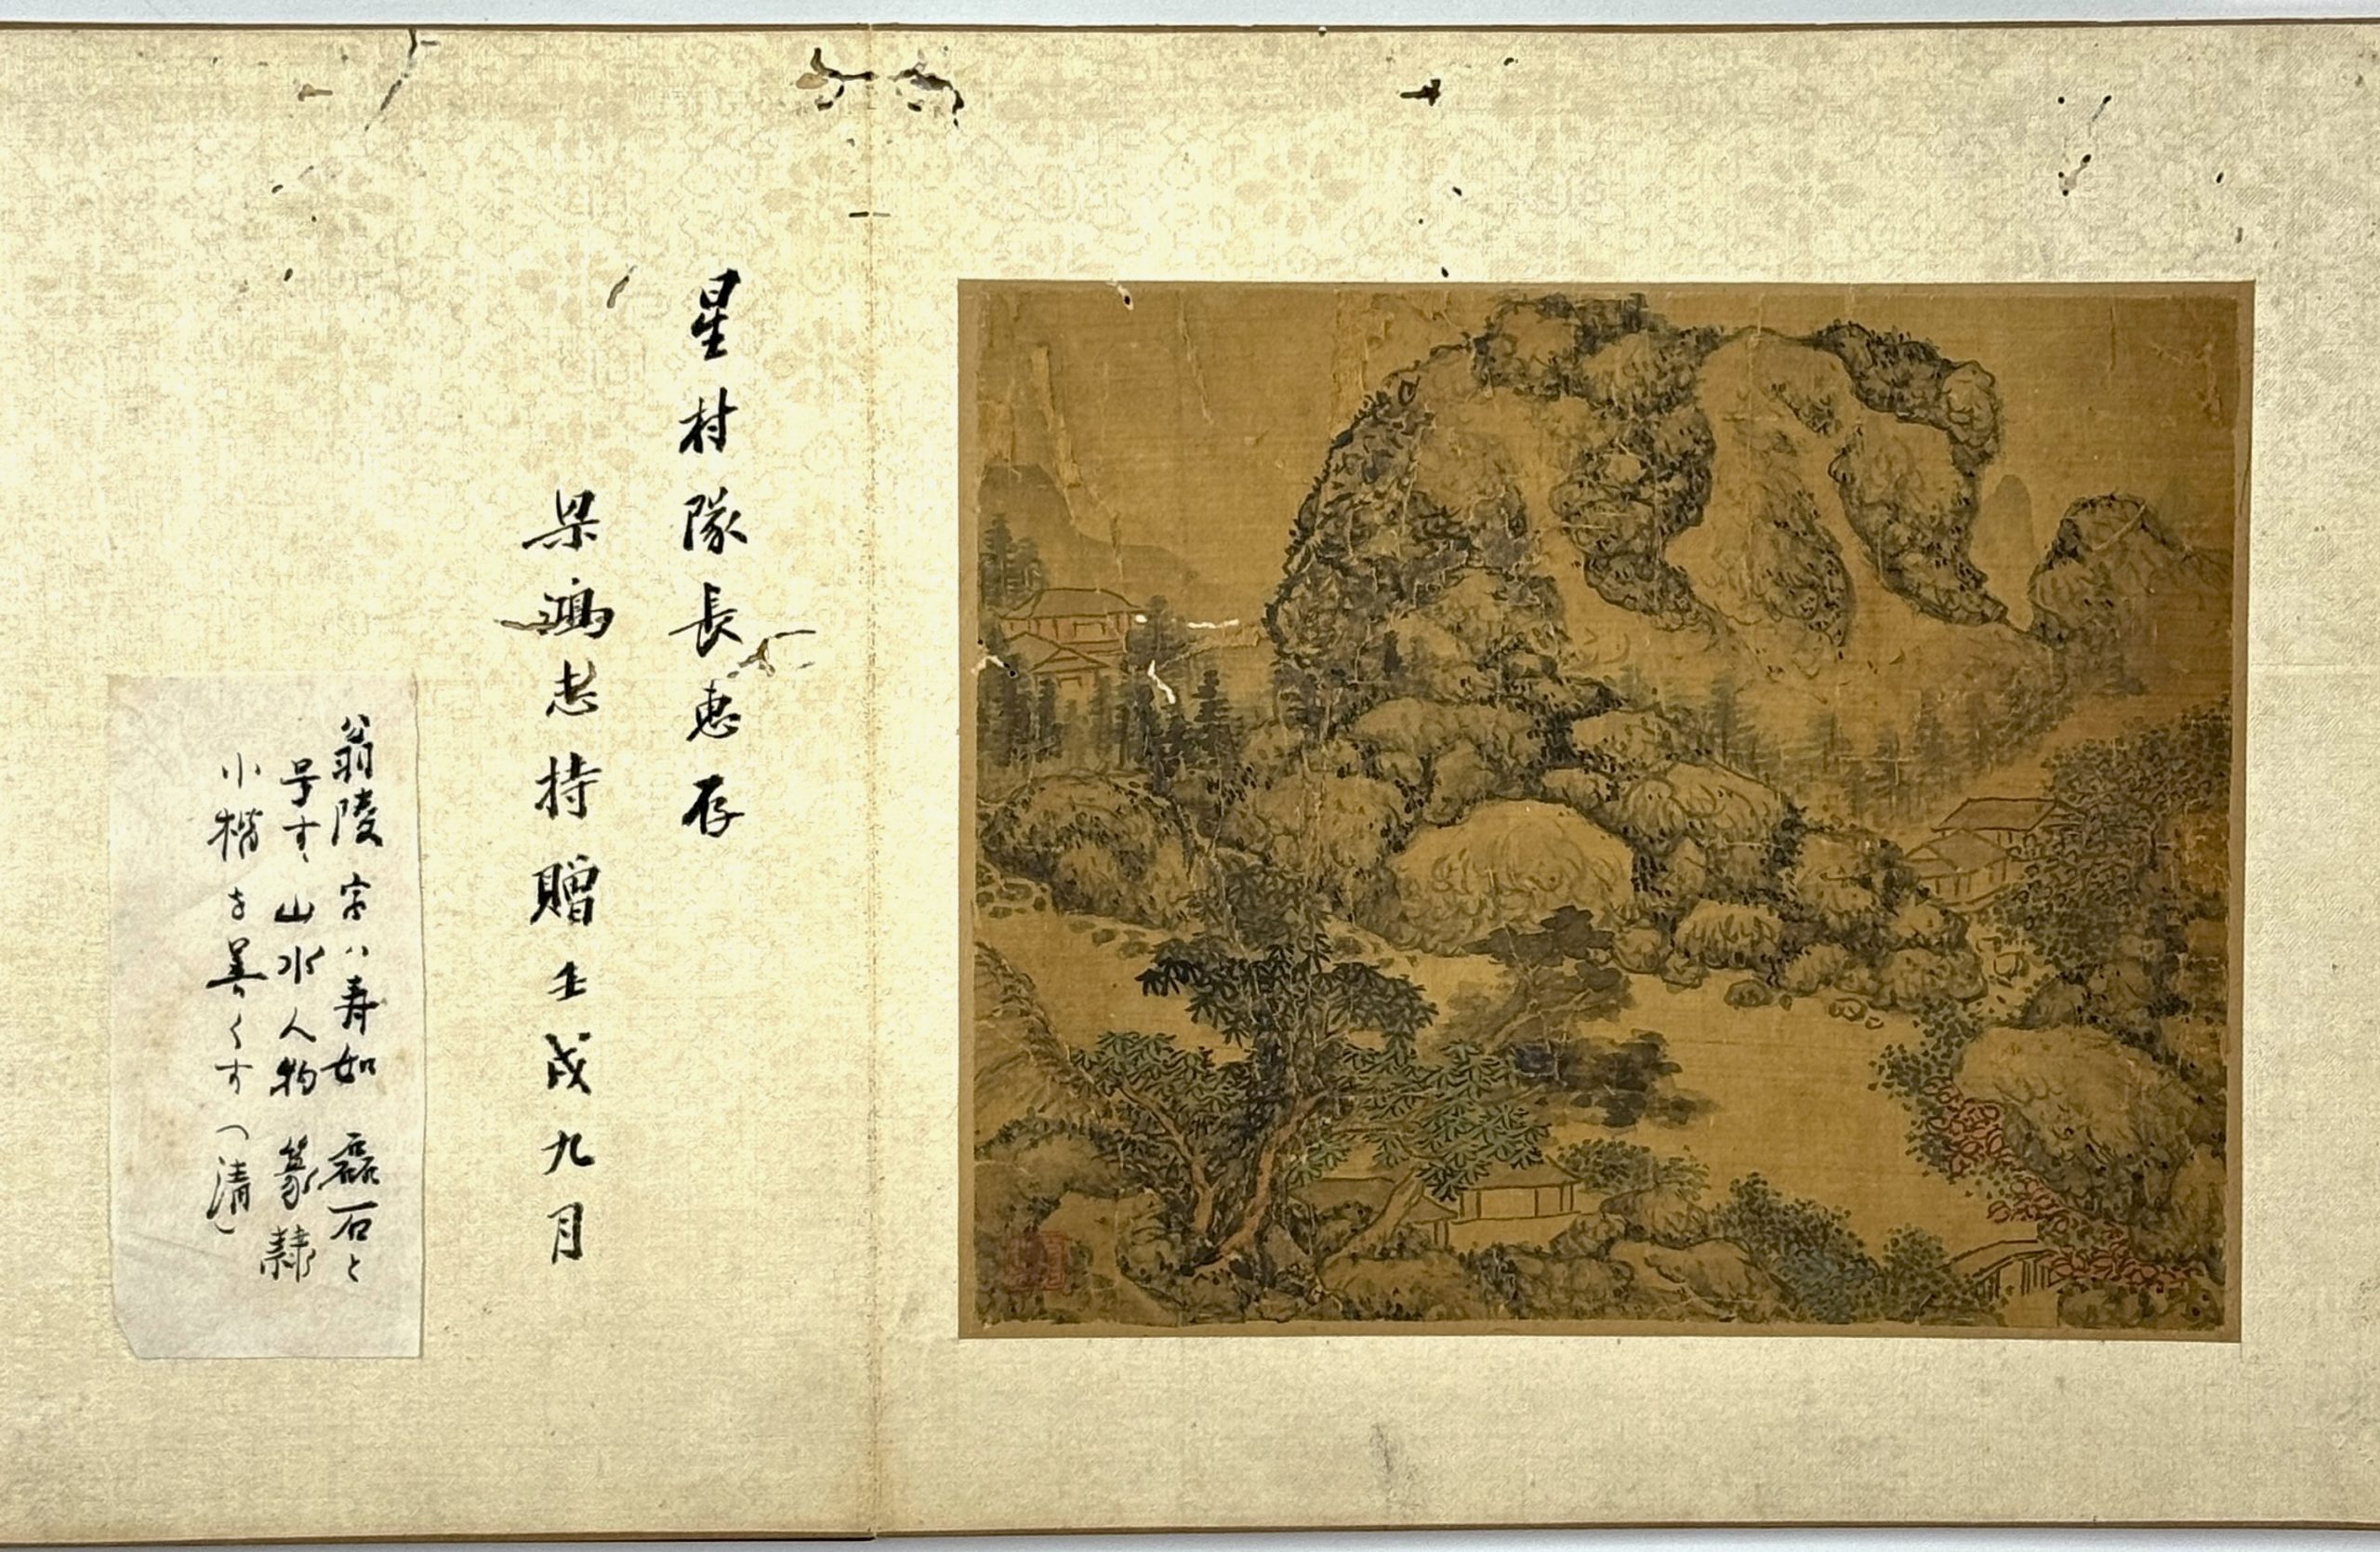 星村隊長惠存
梁鴻志持贈壬戌九月
翁陵字ハ壽如磊石と
号す、山水人物篆隷
小楷を善くす（清）